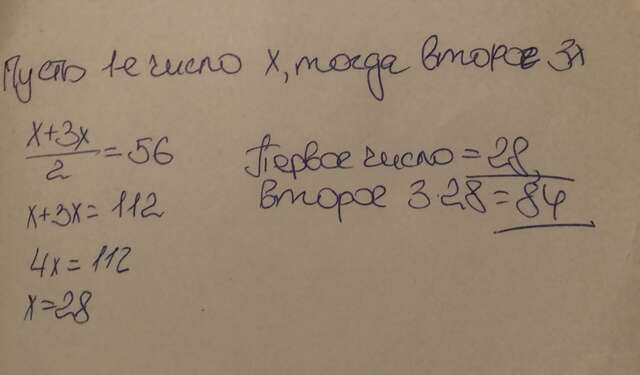 Пусть 1е число x, тогда второе 3x
x+3x
2
=56
x+3x=112
4x=112
x=28
Первое число=28
второе 3·28=84